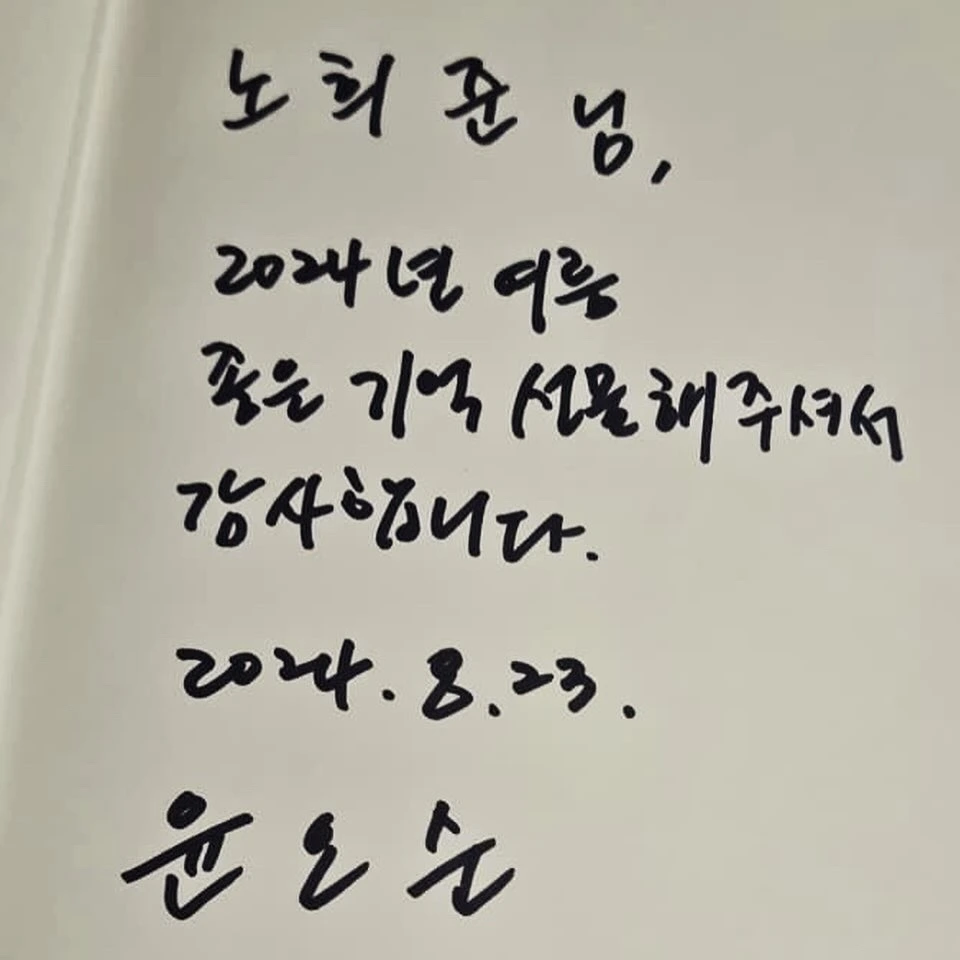 노희준 님,
2024년 여름
좋은 기억 선물해주셔서
감사합니다.
2024. 8. 23.
윤오순